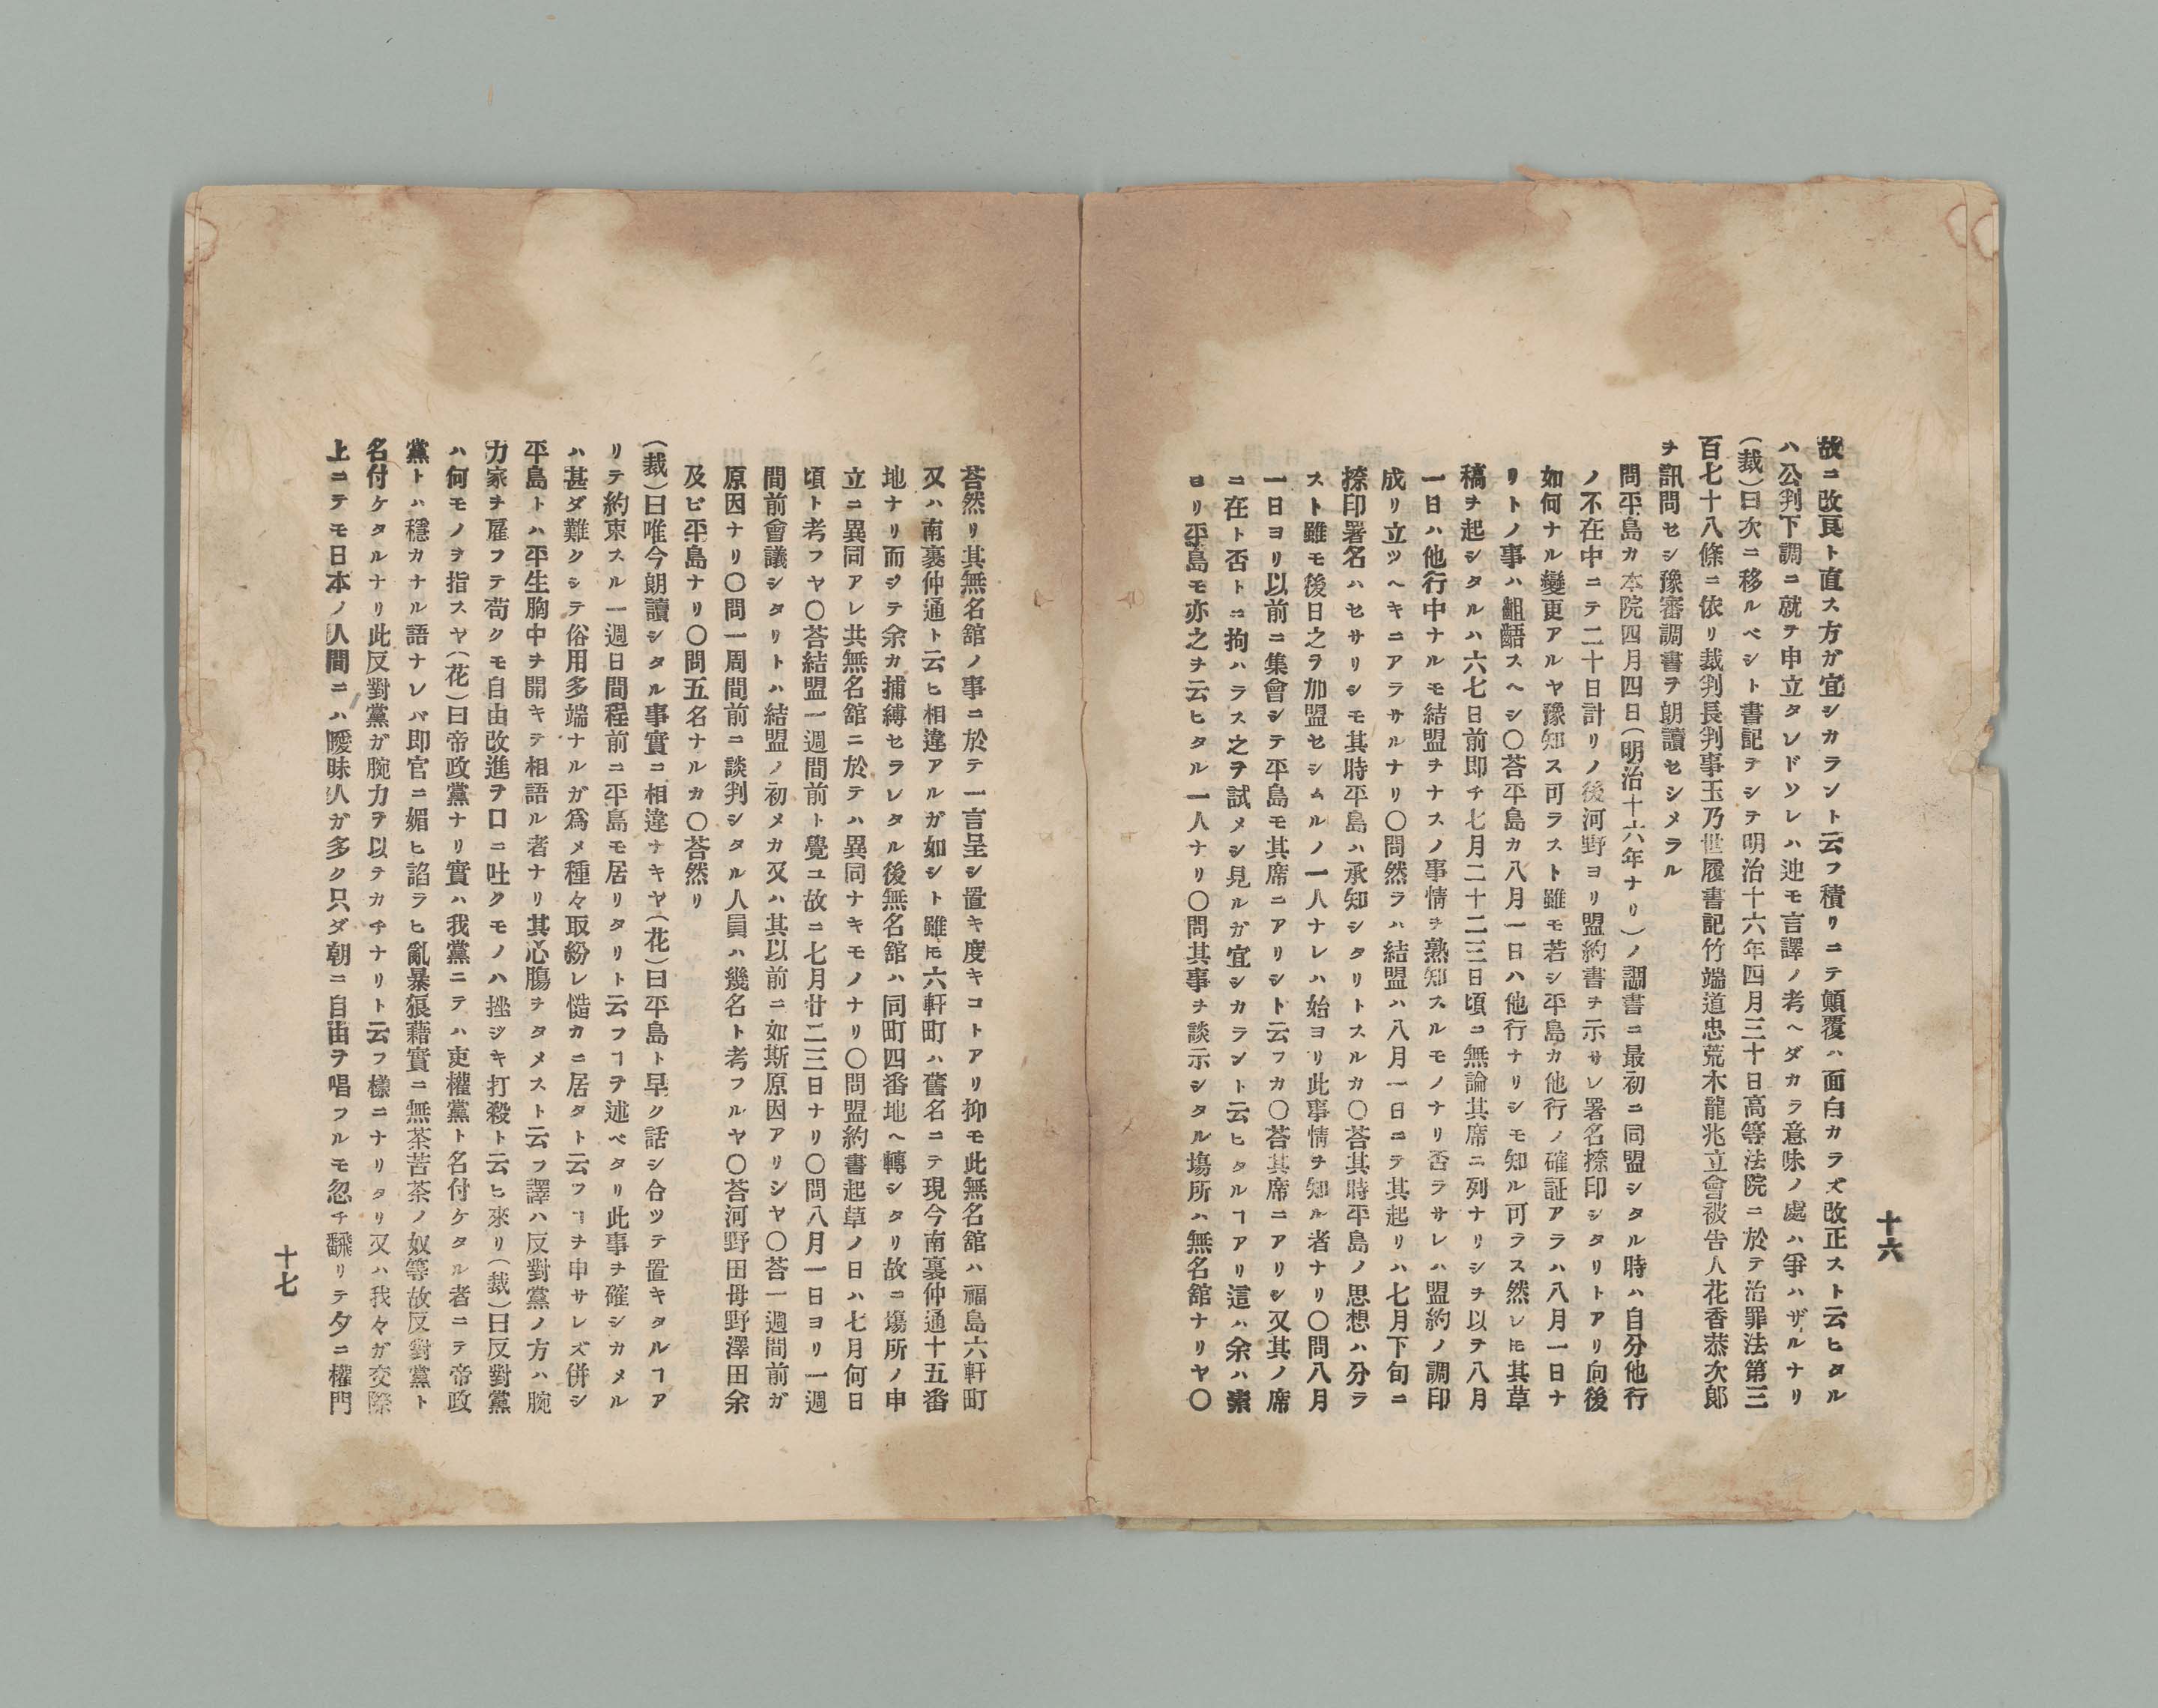 十六
故ニ改良ト直ス方ガ宜シカラント云フ積リニテ顛覆ハ面白カラズ改正スト云ヒタル
ハ公判下調ニ就テ申立タレドソレハ迚モ言譯ノ考ヘダカラ意味ノ處ハ爭ハザルナリ
(裁)曰次ニ移ルベシト書記ヲシテ明治十六年四月三十日高等法院ニ於テ治罪法第三
百七十八條ニ依リ裁判長判事玉乃世履書記竹端道忠荒木龍兆立會被告人花香恭次郎
ヲ訊問セシ豫審調書ヲ朗讀セシメラル
問平島カ本院四月四日(明治十六年ナリ)ノ調書ニ最初ニ同盟シタル時ハ自分他行
ノ不在中ニテ二十日計リノ後河野ヨリ盟約書ヲ示サレ署名捺印シタリトアリ向後
如何ナル變更アルヤ豫知ス可ラスト雖モ若シ平島カ他行ノ確証アラハ八月一日ナ
リトノ事ハ齟齬スヘシ〇荅平島カ八月一日ハ他行ナリシモ知ル可ラス然レ𪜈其草
稿ヲ起シタルハ六七日前即チ七月二十二三日頃ニ無論其席ニ列ナリシヲ以テ八月
一日ハ他行中ナルモ結盟ヲナスノ事情ヲ熟知スルモノナリ否ラサレハ盟約ノ調印
成リ立ツヘキニアラサルナリ〇問然ラハ結盟ハ八月一日ニテ其起リハ七月下旬ニ
捺印署名ハセサリシモ其時平島ハ承知シタリトスルカ〇荅其時平島ノ思想ハ分ラ
スト雖モ後日之ヲ加盟セシムルノ一人ナレハ始ヨリ此事情ヲ知ル者ナリ〇問八月
一日ヨリ以前ニ集會シテ平島モ其席ニアリシト云フカ〇荅其席ニアリシ又其ノ席
ニ在ト否トニ拘ハラス之ヲ試メシ見ルガ宜シカラント云ヒタルヿアリ這ハ余ハ素
ヨリ平島モ亦之ヲ云ヒタル一人ナリ〇問其事ヲ談示シタル塲所ハ無名舘ナリヤ〇
荅然リ其無名舘ノ事ニ於テ一言呈シ置キ度キコトアリ抑モ此無名舘ハ福島六軒町
又ハ南裏仲通ト云ヒ相違アルガ如シト雖𪜈六軒町ハ舊名ニテ現今南裏仲通十五番
地ナリ而シテ余カ捕縛セラレタル後無名舘ハ同町四番地ヘ轉シタリ故ニ塲所ノ申
立ニ異同アレ共無名舘ニ於テハ異同ナキモノナリ〇問盟約書起草ノ日ハ七月何日
頃ト考フヤ〇荅結盟一週間前ト覺ユ故ニ七月廿二三日ナリ〇問八月一日ヨリ一週
間前會議シタリトハ結盟ノ初メカ又ハ其以前ニ如斯原因アリシヤ〇荅一週間前ガ
原因ナリ〇問一周間前ニ談判シタル人員ハ幾名ト考フルヤ〇荅河野田母野澤田余
及ビ平島ナリ〇問五名ナルカ〇荅然リ
(裁)曰唯今朗讀シタル事實ニ相違ナキヤ(花)曰平島ト早ク話シ合ツテ置キタルヿア
リテ約束スル一週日間程前ニ平島モ居リタリト云フヿヲ述ベタリ此事ヲ確シカメル
ハ甚ダ難クシテ俗用多端ナルガ爲メ種々取紛レ慥カニ居タト云フヿヲ申サレズ併シ
平島トハ平生胸中ヲ開キテ相語ル者ナリ其心膓ヲタメスト云フ譯ハ反對黨ノ方ハ腕
力家ヲ雇フテ苟クモ自由改進ヲ口ニ吐クモノハ挫シキ打殺ト云ヒ來リ(裁)曰反對黨
ハ何モノヲ指スヤ(花)曰帝政黨ナリ實ハ我黨ニテハ吏權黨ト名付ケタル者ニテ帝政
黨トハ穩カナル語ナレバ即官ニ媚ヒ諂ラヒ亂暴狼藉實ニ無茶苦茶ノ奴等故反對黨ト
名付ケタルナリ此反對黨ガ腕力ヲ以テカチナリト云フ樣ニナリタリ又ハ我々ガ交際
上ニテモ日本ノ人間ニハ曖昧人ガ多ク只ダ朝ニ自由ヲ唱フルモ忽チ飜リテ夕ニ權門
十七